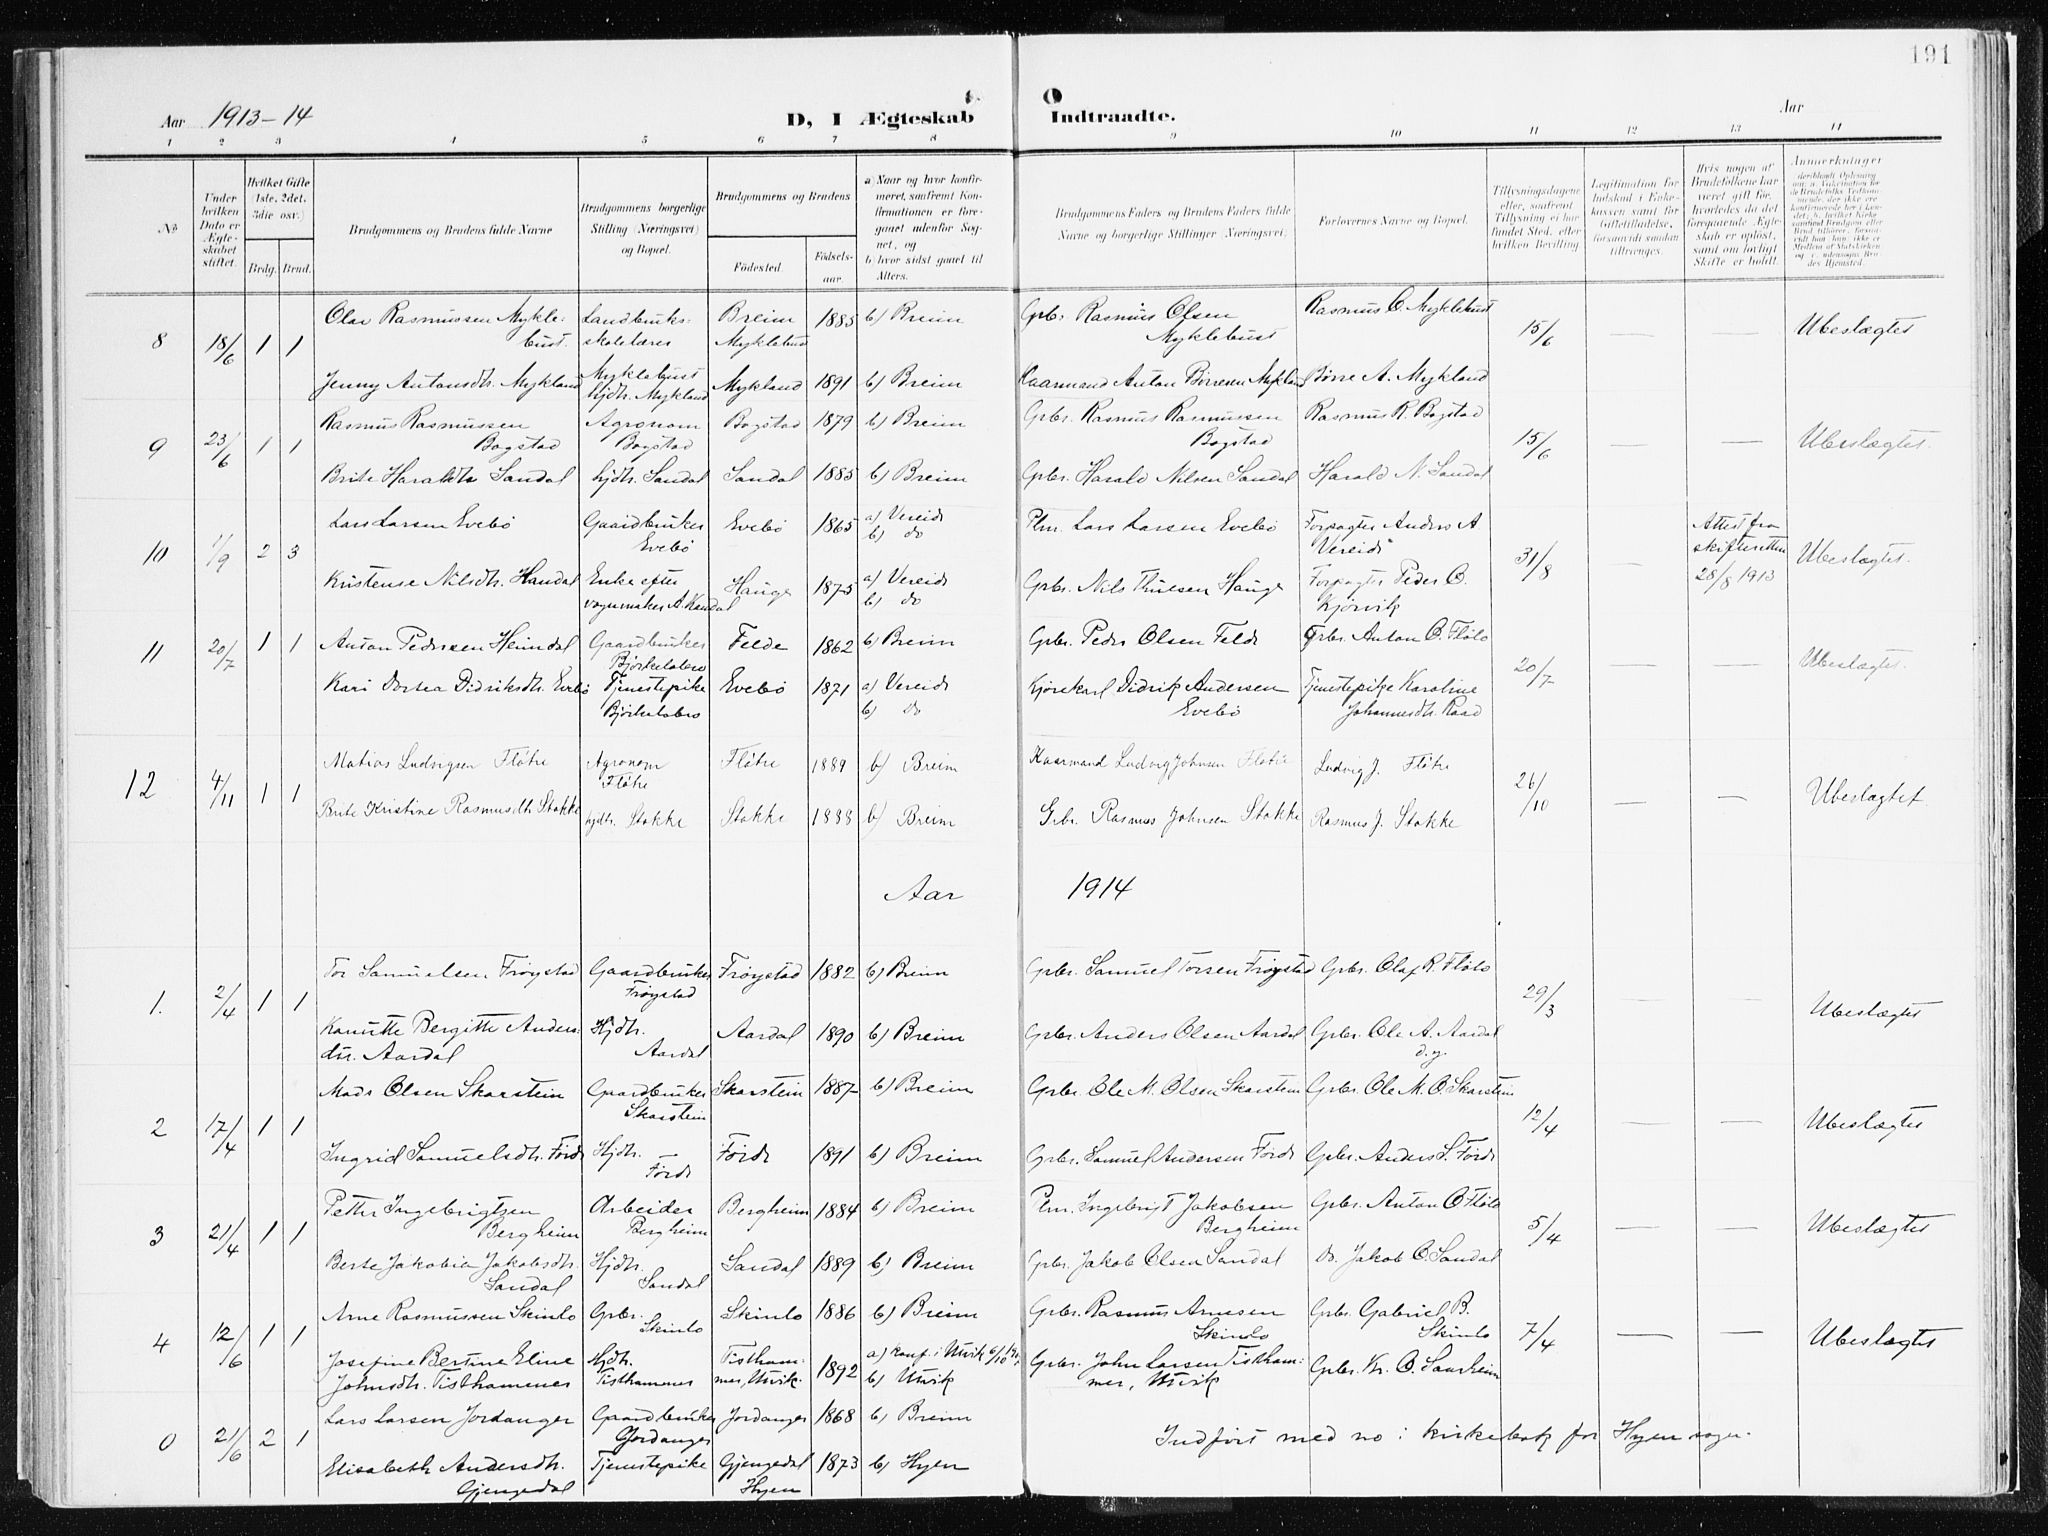 191
Aar 1913-14
D, I Ægteskab Indtraadte.
Aar
1 2 3 4 5 6 7 8 9 10 11 12 13 14
№
Under hvilken Dato er Ægteskabet stiftet.
Hvilket Gifte (1ste, 2det, 3die osv.)
Brdg. Brud.
Brudgommens og Brudens fulde Navne
Brudgommens borgerlige Stilling (Næringsvei) og Bopæl.
Brudgommens og Brudens
Fødested. Fødsels-aar.
a) Naar og hvor konfirmeret, saafremt Konfirmationen er foregaaet udenfor Sognet, og
b) hvor sidst gaaet til Alters.
Brudgommens Faders og Brudens Faders fulde Navne og borgerlige Stillinger (Næringsvei)
Forlovernes Navne og Bopæl.
Tillysningsdagene eller, saafremt Tillysning ei har fundet Sted, efter hvilken Bevilling.
Legitimation for Indskud i Enkekassen samt for Giftetilladelse, forsaavidt saadan tiltrænges.
Hvis nogen af Brudefolkene har været gift før, hvorledes da det foregaaende Ægteskab er opløst, samt om lovligt Skifte er holdt.
Anmerkninger
8 18/6 1 1 Olav Rasmussen Myklebust. Landbruksskolelærer Myklebust Breim Myklebust 1885 b) Breim Grbr. Rasmus Olsen Myklebust Rasmus O. Myklebust 15/6 — — Ubeslægtet
Jenny Antonsdtr. Mykland hjdtr. Mykland Mykland 1891 b) Breim Kaarmand Anton Børresen Mykland Børre A. Mykland
9 23/6 1 1 Rasmus Rasmussen Bogstad Agronom Bogstad Bogstad 1879 b) Breim Grbr. Rasmus Rasmussen Bogstad Rasmus R. Bogstad 15/6 — — Ubeslægtet.
Brite Haraldtr Sandal hjdtr. Sandal Sandal 1885 b) Breim Grbr. Harald Nilsen Sandal Harald N. Sandal
10 1/9 2 3 Lars Larsen Evebø Gaardbruker Evebø Evebø 1865 a) Vereide b) do Plm. Lars Larsen Evebø Forpagter Anders A Vereide 31/8 — Attest fra skifteretten 28/8 1913 Ubeslægtet.
Kristense Nilsdtr. Handal Enke efter vognmaker A. Handal Hauge 1875 a) Vereide b) do Grbr. Nils Thuesen Hauge Forpagter Peder O. Kjørvik
11 20/7 1 1 Anton Pedersen Heimdal Gaardbruker Bjørkelobro Felde 1862 b) Breim Grbr. Peder Olsen Felde Grbr. Anton O. Fløto 20/7 — — Ubeslægtet.
Kari Dortea Didriksdtr. Evebø Tjenestepike Bjørkelobro Evebø 1871 a) Vereide b) do Kjørekarl Didrik Andersen Evebø Tjenestepike Karoline Johannesdtr. Raad
12 4/11 1 1 Matias Ludvigsen Fløtre Agronom Fløtre Fløtre 1889 b) Breim Kaarmand Ludvig Johnsen Fløtre Ludvig J. Fløtre 26/10 — — Ubeslægtet
Brite Kristine Rasmusdtr Stokke hjdtr. Stokke Stokke 1888 b) Breim Grbr. Rasmus Johnsen Stokke Rasmus J. Stokke
Aar 1914
1. 2/4 1 1 Tor Samuelsen Frøystad Gaardbruker Frøystad Frøystad 1882 b) Breim Grbr. Samuel Torsen Frøystad Grbr. Olaf R. Fløto 29/3 — — Ubeslægtet
Kanutte Bergitte Andersdtr. Aardal Hjdtr. Aardal Aardal 1890 b) Breim Grbr. Anders Olsen Aardal Grbr. Ole A. Aardal d.y.
2 17/4 1 1 Mads Olsen Skarstein Gaardbruker Skarstein Skarstein 1887 b) Breim Grbr. Ole M. Olsen Skarstein Grbr. Ole M. O. Skarstein 12/4 — — Ubeslægtet
Ingrid Samuelsdtr. Førde Hjdtr. Førde Førde 1891 b) Breim Grbr. Samuel Andersen Førde Grbr. Anders S. Førde
3 21/4 1 1 Petter Ingebrigtsen Bergheim Arbeider Bergheim Bergheim 1884 b) Breim Plm. Ingebrigt Jakobsen Bergheim Grbr. Anton O Fløto 5/4 — — Ubeslægtet
Berte Jakobia Jakobsdtr. Sandal Hjdtr. Sandal Sandal 1889 b) Breim Grbr. Jakob Olsen Sandal Do. Jakob O. Sandal
4 12/6 1 1 Arne Rasmussen Skinlo Grbr. Skinlo Skinlo 1886 b) Breim Grbr. Rasmus Arnesen Skinlo Grbr. Gabriel B. Skinlo 7/4 — — Ubeslægtet
Josefine Bertine Eline Johnsdtr. Tisthammer Hjdtr. Tisthammer Tisthammer, Utvik. 1892 a) konf. i Utvik b) Utvik Grbr. John Larsen Tisthammer, Utvik Grbr. Kr. O. Saarheim
0 21/6 2 1 Lars Larsen Jordanger Gaardbruker Jordanger Jordanger 1868 b) Breim Indført med no i kirkebok for Hyen sogn.
Elisabeth Andersdtr. Gjengedal Tjenestepike Gjengedal Hyen 1873 b) Hyen